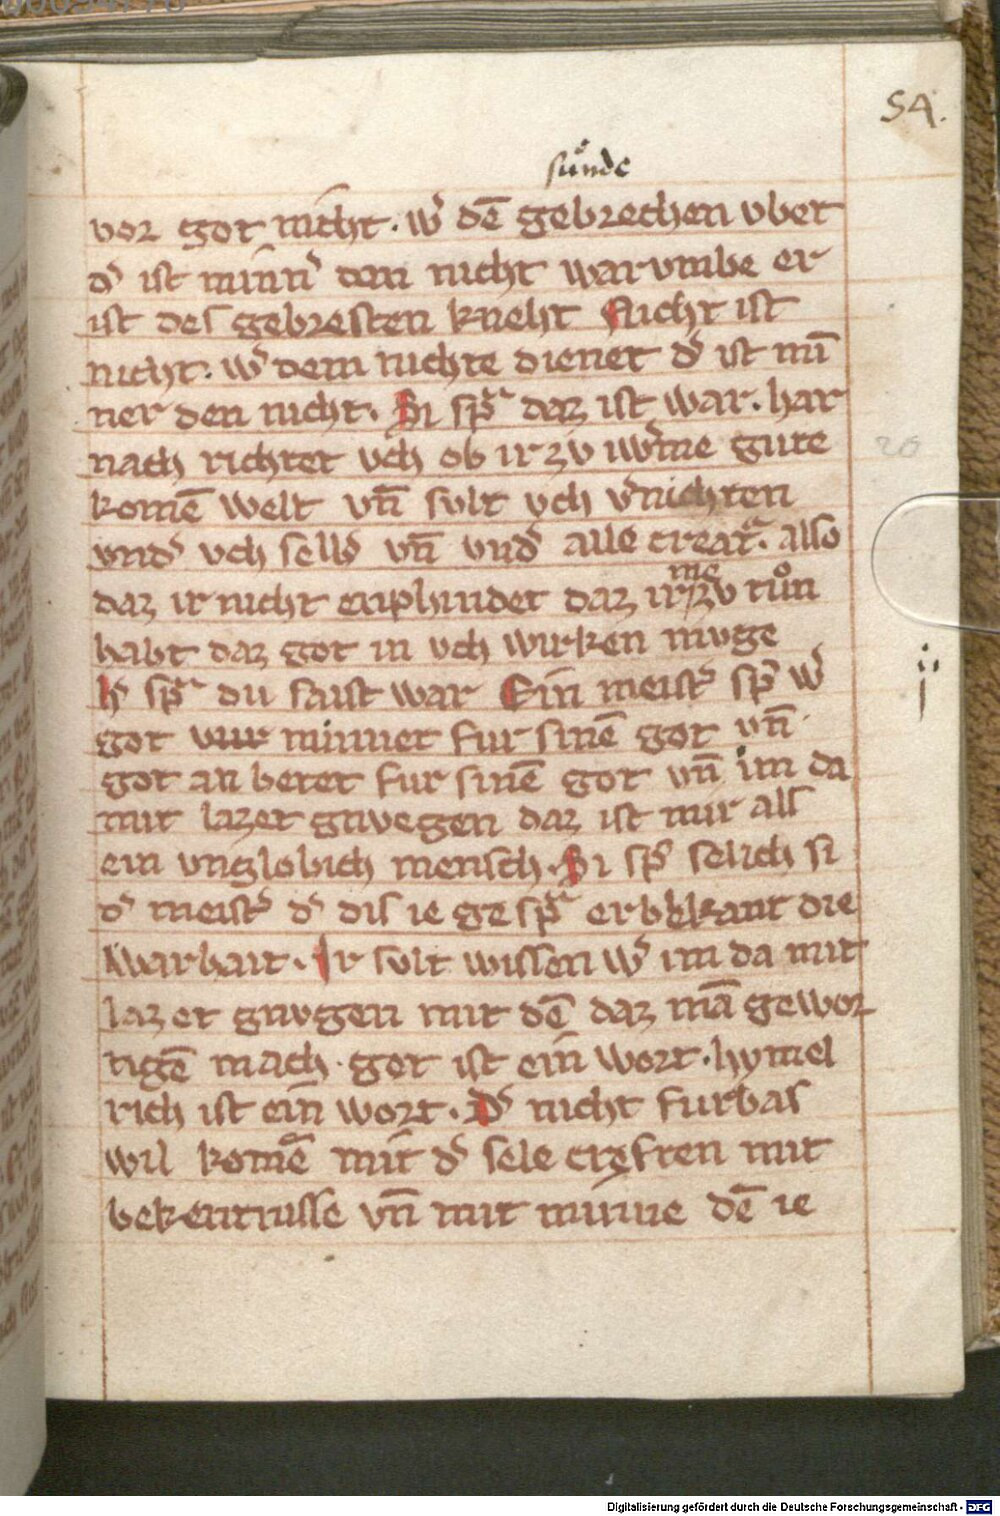 54.
sůnde
vor got nicht. wͤ dē gebrechen vbet
dͤ ist minnͤ den nicht warvmbe er
ist des gebresten kneht Nicht ist
nicht. wͤ dem nichte dienet dͤ ist mī
ner den nicht. Si spᷓ daz ist war. har
nach richtet vch ob ir zv iwͤme gute
komē welt vn̄ svlt vch vͤnichten
vndͤ vch selbͤ vn̄ vndͤ alle creatᷓ. also
me
daz ir nicht enphindet daz ir zv tůn
habt daz got in vch wirken mvge
hͤ spᷓ du saist war Ein meistͤ spͤ wͤ
got minnet fur sinē got vn̄
got an betet fur sinē got vn̄ im da
mit lazet gnvegen daz ist mir als
ein vnglobich mensch. Si spͤ selich si
dͤ meistͤ dͤ dis ie gespᷓ er bekant die
warhait. Ir svlt wissen wͤ im da mit
lazet gnvgen mit dē daz mā gewor
tigē mach. got ist ein wort. hymel
rich ist ein wort. Dͤ nicht furbas
wil komē mit dͤ sele creften mit
bekentnisse vn̄ mit minne dē ie
Digitalisierung gefördert durch die Deutsche Forschungsgemeinschaft - DFG